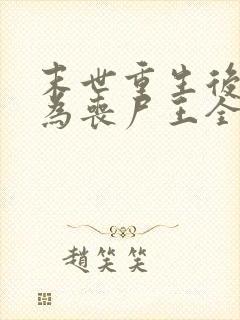 末世重生後
為喪尸王全
趙笑笑